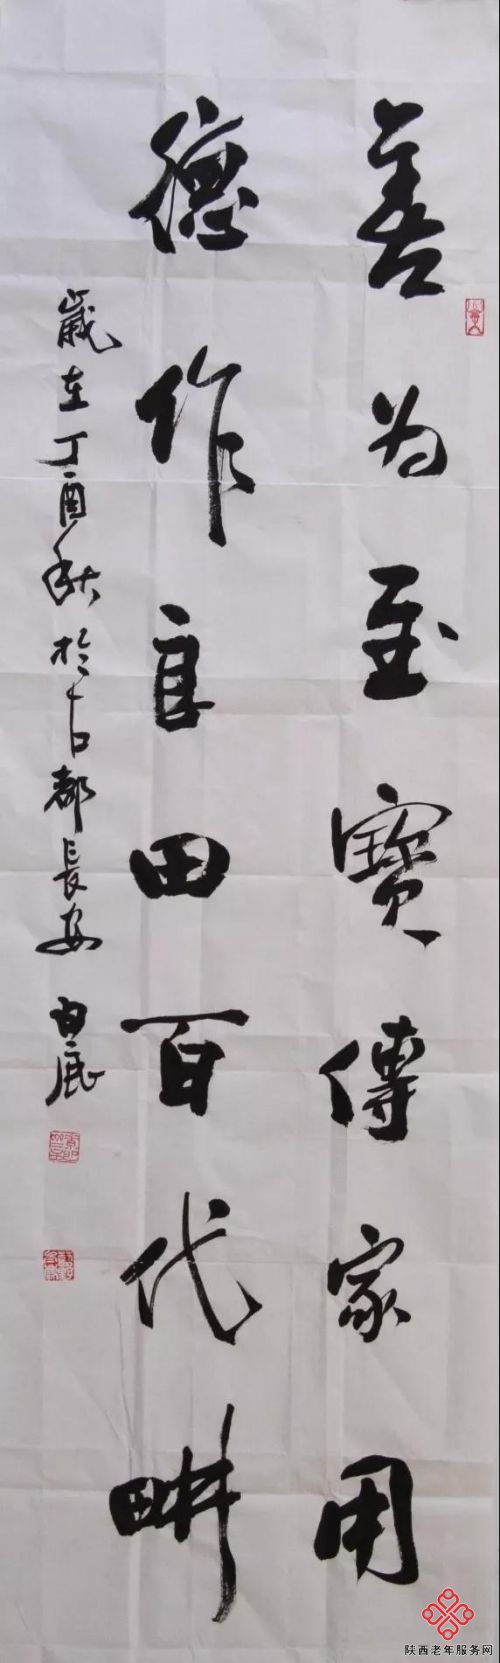 善为至寳傳家用
德作良田百代畊
歲在丁酉秋於古都長安
陕西老年服务网